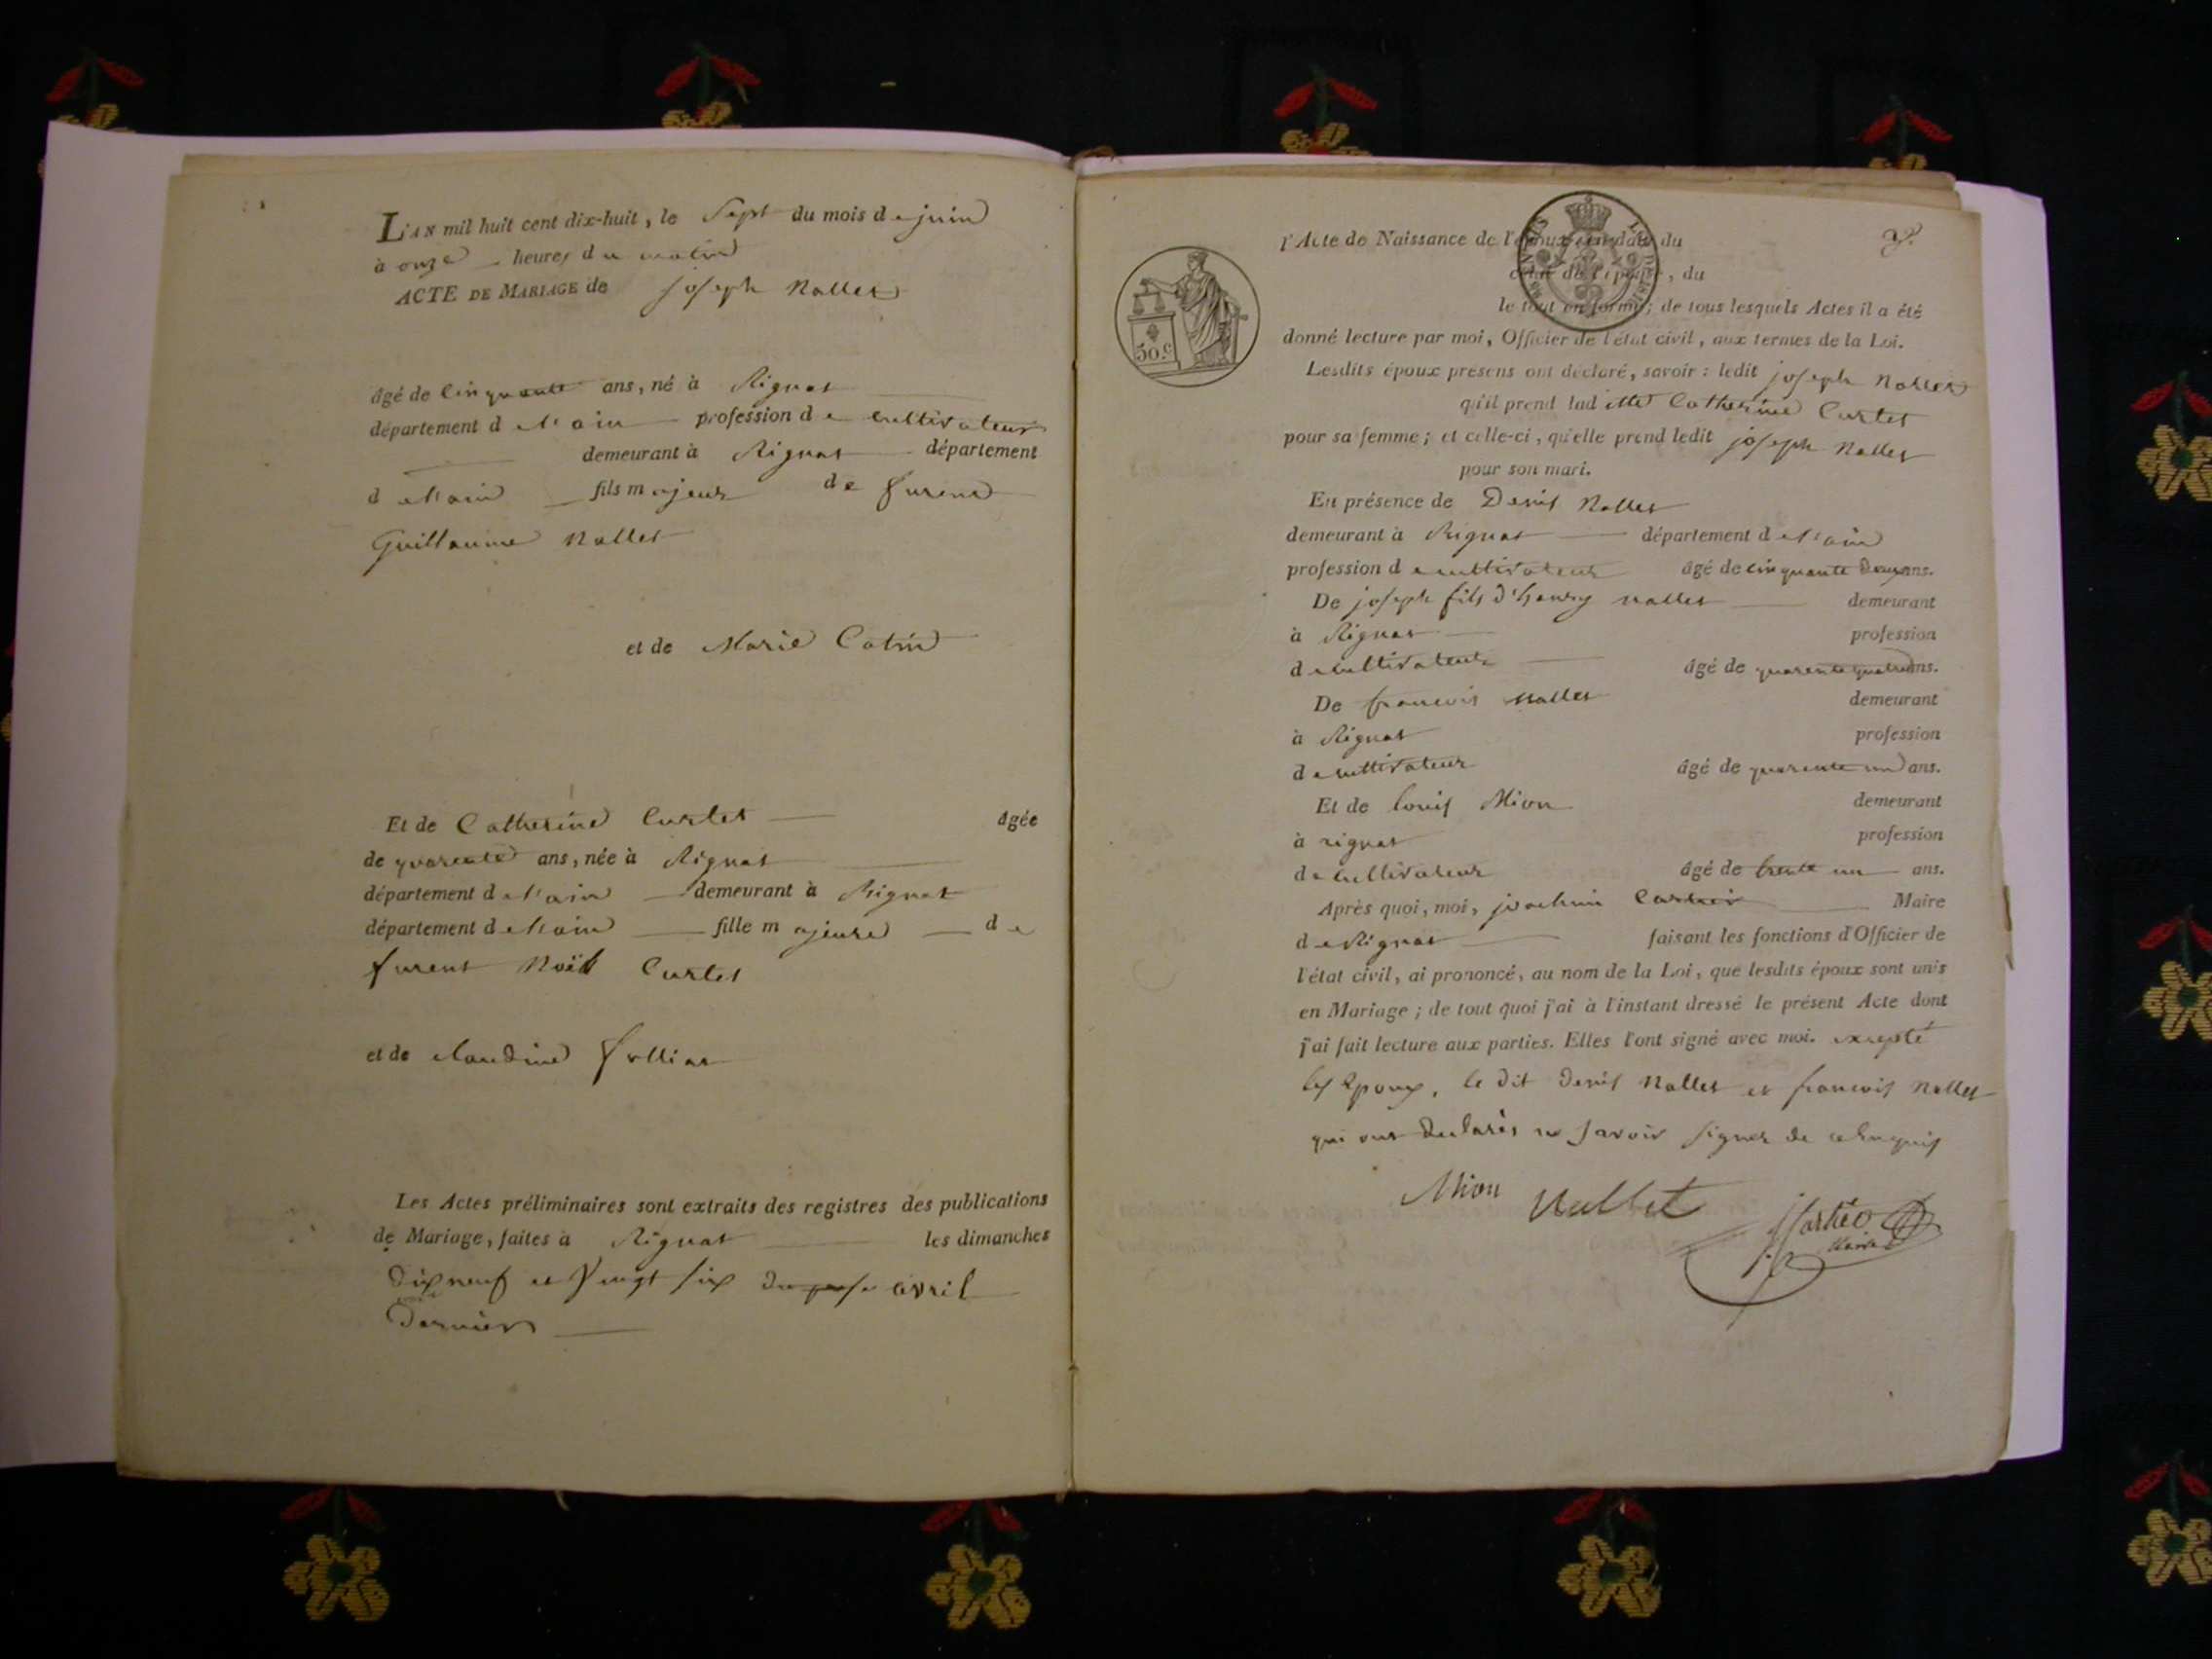 L'AN mil huit cent dix-huit, le Sept du mois de juin
à onze heures du matin
ACTE DE MARIAGE de joseph Nallet
âgé de Cinquante ans, né à Rignat
département de l'ain profession de Cultivateur
demeurant à Rignat département
de l'ain fils majeur de furent
Guillaume Nallet
et de Marie Catin
Et de Catherine Curtet âgée
de quarente ans, née à Rignat
département de l'ain demeurant à Rignat
département de l'ain fille majeure de
furent Noël Curtet
et de claudine
Les Actes préliminaires sont extraits des registres des publications
de Mariage, faites à Rignat les dimanches
dix neuf et Vingt six avril
Dernier
l'Acte de Naissance de l'époux en date du
celui de l'épouse, du
le tout en forme; de tous lesquels Actes il a été
donné lecture par moi, Officier de l'état civil, aux termes de la Loi.
Lesdits époux présens ont déclaré, savoir : ledit joseph Nallet
qu'il prend laditte Catherine Curtet
pour sa femme; et celle-ci, qu'elle prend ledit joseph Nallet
pour son mari.
En présence de Denis Nallet
demeurant à Rignat département de l'ain
profession de cultivateur âgé de cinquante deux ans.
De joseph fils d'henry Nallet demeurant
à Rignat profession
de cultivateur âgé de quarente quatre ans.
De francois Nallet demeurant
à Rignat profession
de cultivateur âgé de quarente un ans.
Et de louis Mion demeurant
à rignat profession
de cultivateur âgé de trente un ans.
Après quoi, moi, joachim Maire
de Rignat faisant les fonctions d'Officier de
l'état civil, ai prononcé, au nom de la Loi, que lesdits époux sont unis
en Mariage; de tout quoi j'ai à l'instant dressé le présent Acte dont
j'ai fait lecture aux parties. Elles l'ont signé avec moi. excepté
les Epoux, le dit Denis Nallet et francois Nallet
qui ont declarés ne savoir signer de ce enquis
Mion Nallet
Maire
50.c